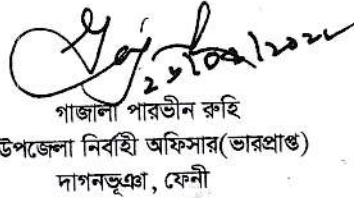 গাজালা পারভীন রুহি
উপজেলা নির্বাহী অফিসার(ভারপ্রাপ্ত)
দাগনভূঞা, ফেনী